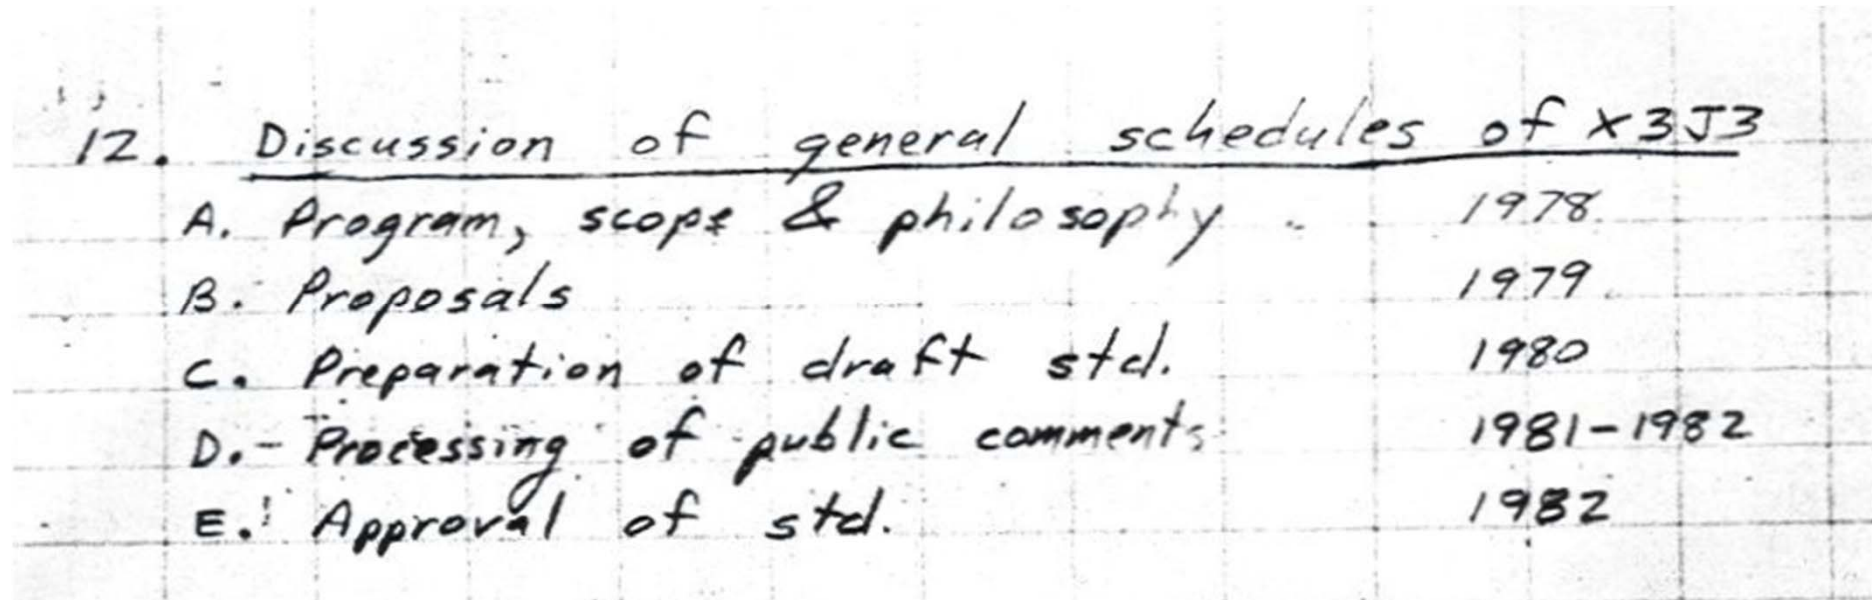 12. Discussion of general schedules of X3J3
A. Program, scope & philosophy 1978
B. Proposals 1979
C. Preparation of draft std. 1980
D. Processing of public comments 1981-1982
E. Approval of std. 1982